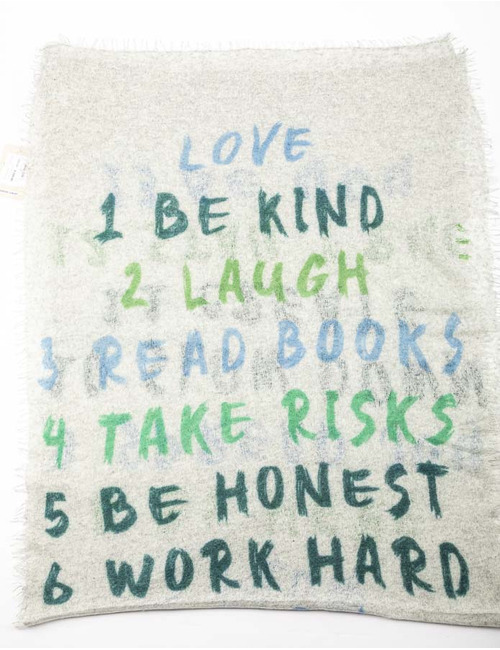 LOVE
1 BE KIND
2 LAUGH
3 READ BOOKS
4 TAKE RISKS
5 BE HONEST
6 WORK HARD